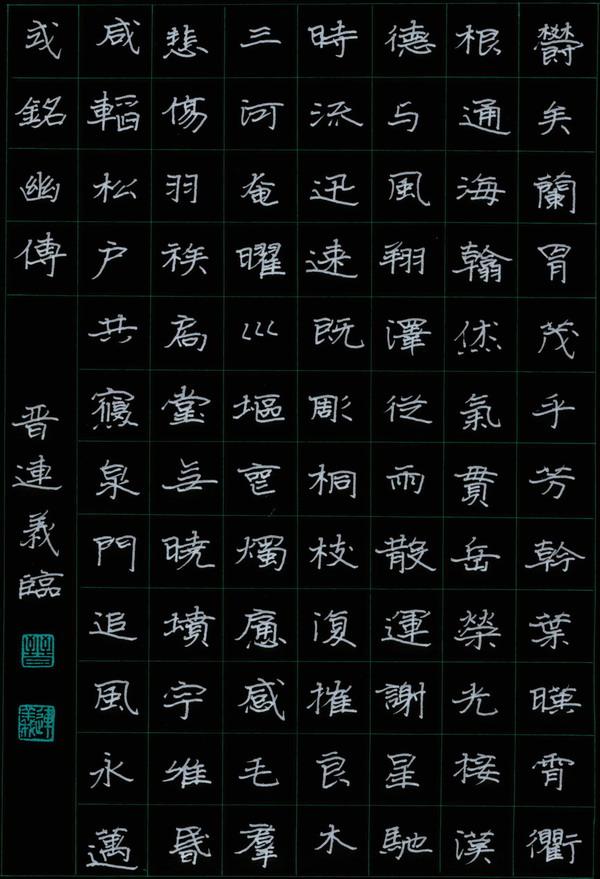 欝矣蘭胄茂乎芳幹葉暎霄衢
根通海翰烋氣貫岳榮光接漢
德与風翔澤從雨散運謝星馳
時流迅速既彫桐枝復摧良木
三河奄曜巛塸燭感毛羣
悲傷羽族扃堂无曉墳宇唯昏
咸韜松户共寢泉門追風永邁
式銘幽傳
晋連義臨